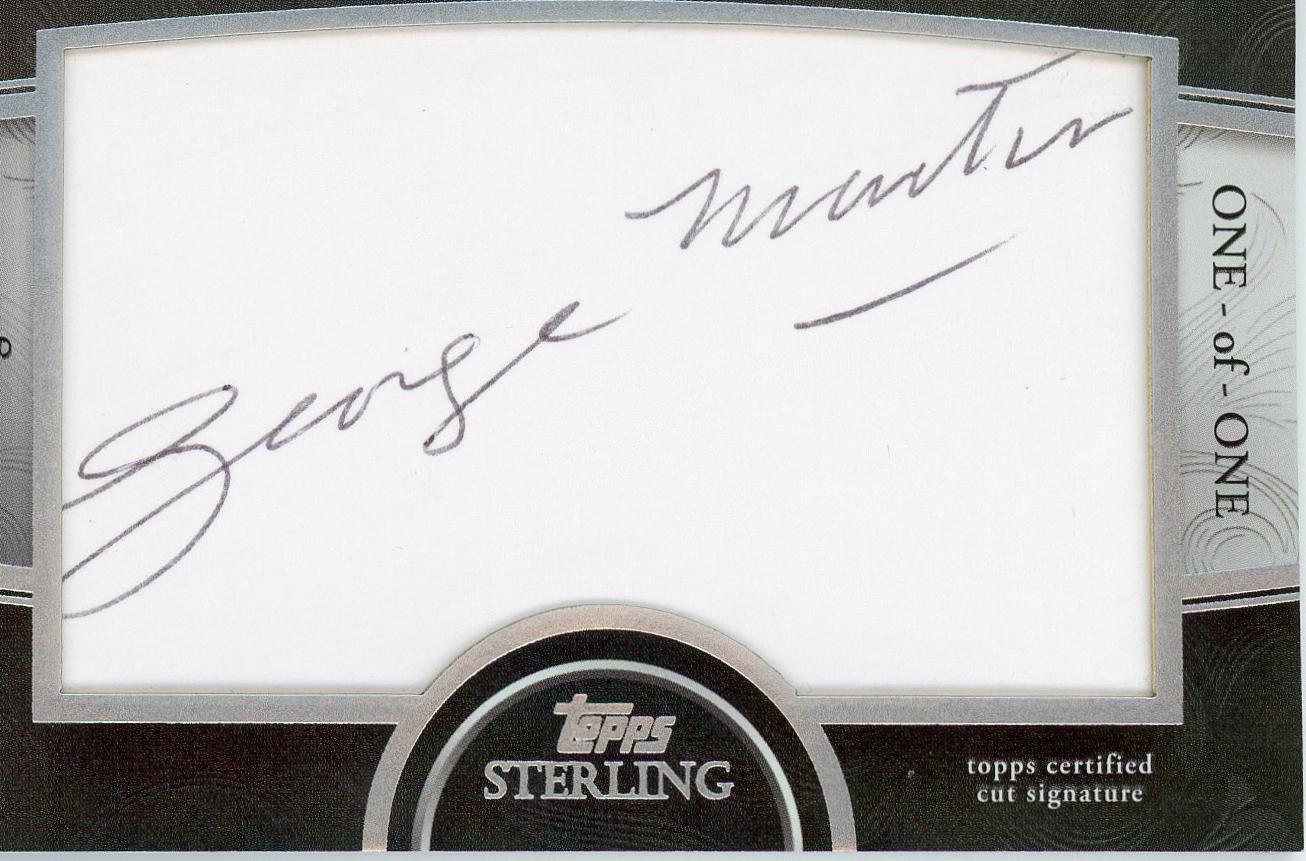 George Martin
ONE - of - ONE
topps
STERLING
topps certified
cut signature